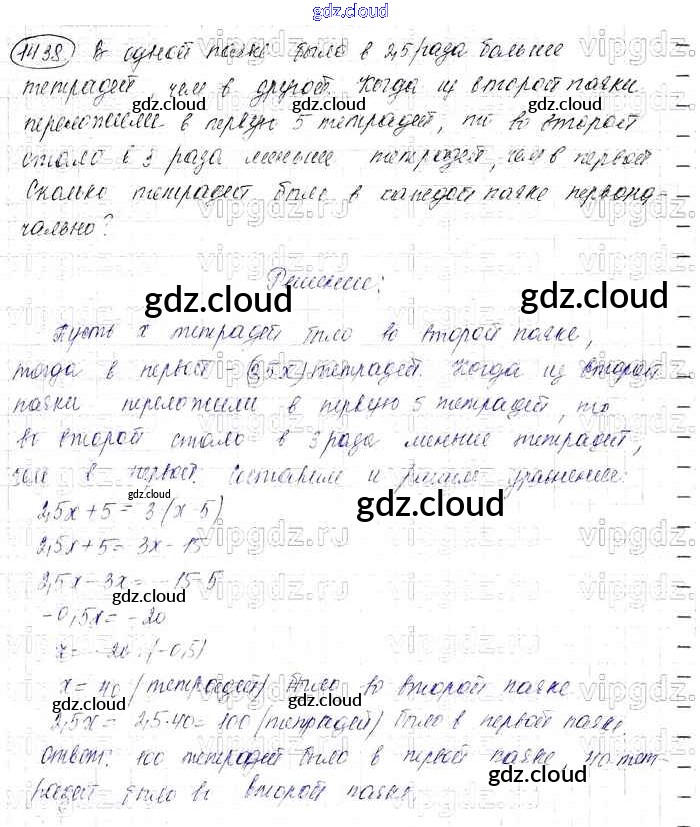 gdz.cloud
1438. В одной пачке было в 2,5 раза больше
тетрадей, чем в другой. Когда из второй пачки
переложили в первую 5 тетрадей, то во второй
стало в 3 раза меньше тетрадей, чем в первой
Сколько тетрадей было в каждой пачке первона-
чально?
Решение:
Пусть x тетрадей было во второй пачке,
тогда в первой - (2,5x) тетрадей. Когда из второй
пачки переложили в первую 5 тетрадей, то
во второй стало в 3 раза меньше тетрадей,
чем в первой. Составим и решим уравнение:
2,5x + 5 = 3(x - 5)
2,5x + 5 = 3x - 15
2,5x - 3x = -15 - 5
-0,5x = -20
x = -20 : (-0,5)
x = 40 (тетрадей) было во второй пачке
2,5x = 2,5·40 = 100 (тетрадей) было в первой пачке.
Ответ: 100 тетрадей было в первой пачке, 40 тет-
радей было во второй пачке
gdz.cloud
gdz.cloud
gdz.cloud
gdz.cloud
gdz.cloud
gdz.cloud
gdz.cloud
gdz.cloud
gdz.cloud
vipgdz.ru